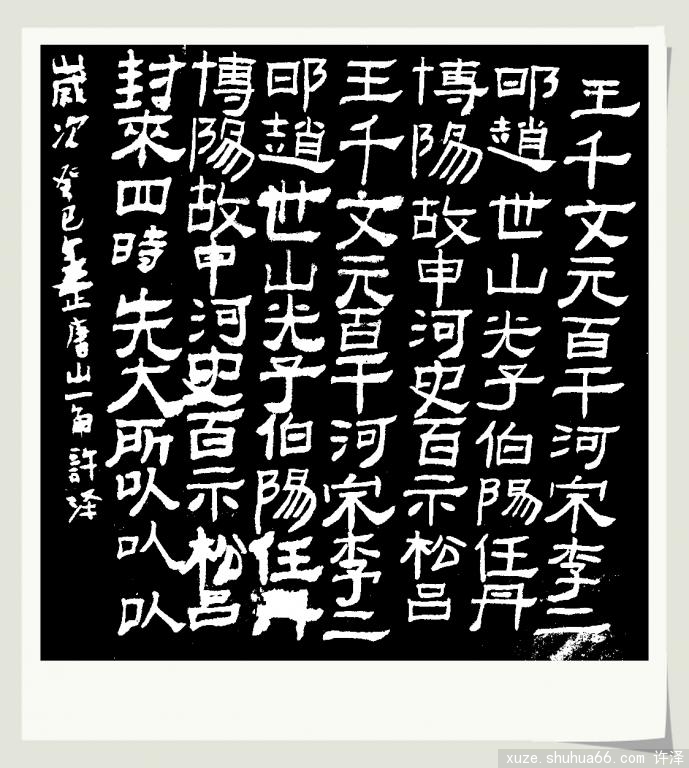 王千文元百干河宋李二
邙趙世山光子伯陽任丹
博陽故申河史百示松吕
王千文元百干河宋李二
邙趙世山光子伯陽任丹
博陽故申河史百示松吕
封來四時先大所以以以
歲次癸巳年正唐山一角許泽
xuze.shuhua66.com 许泽